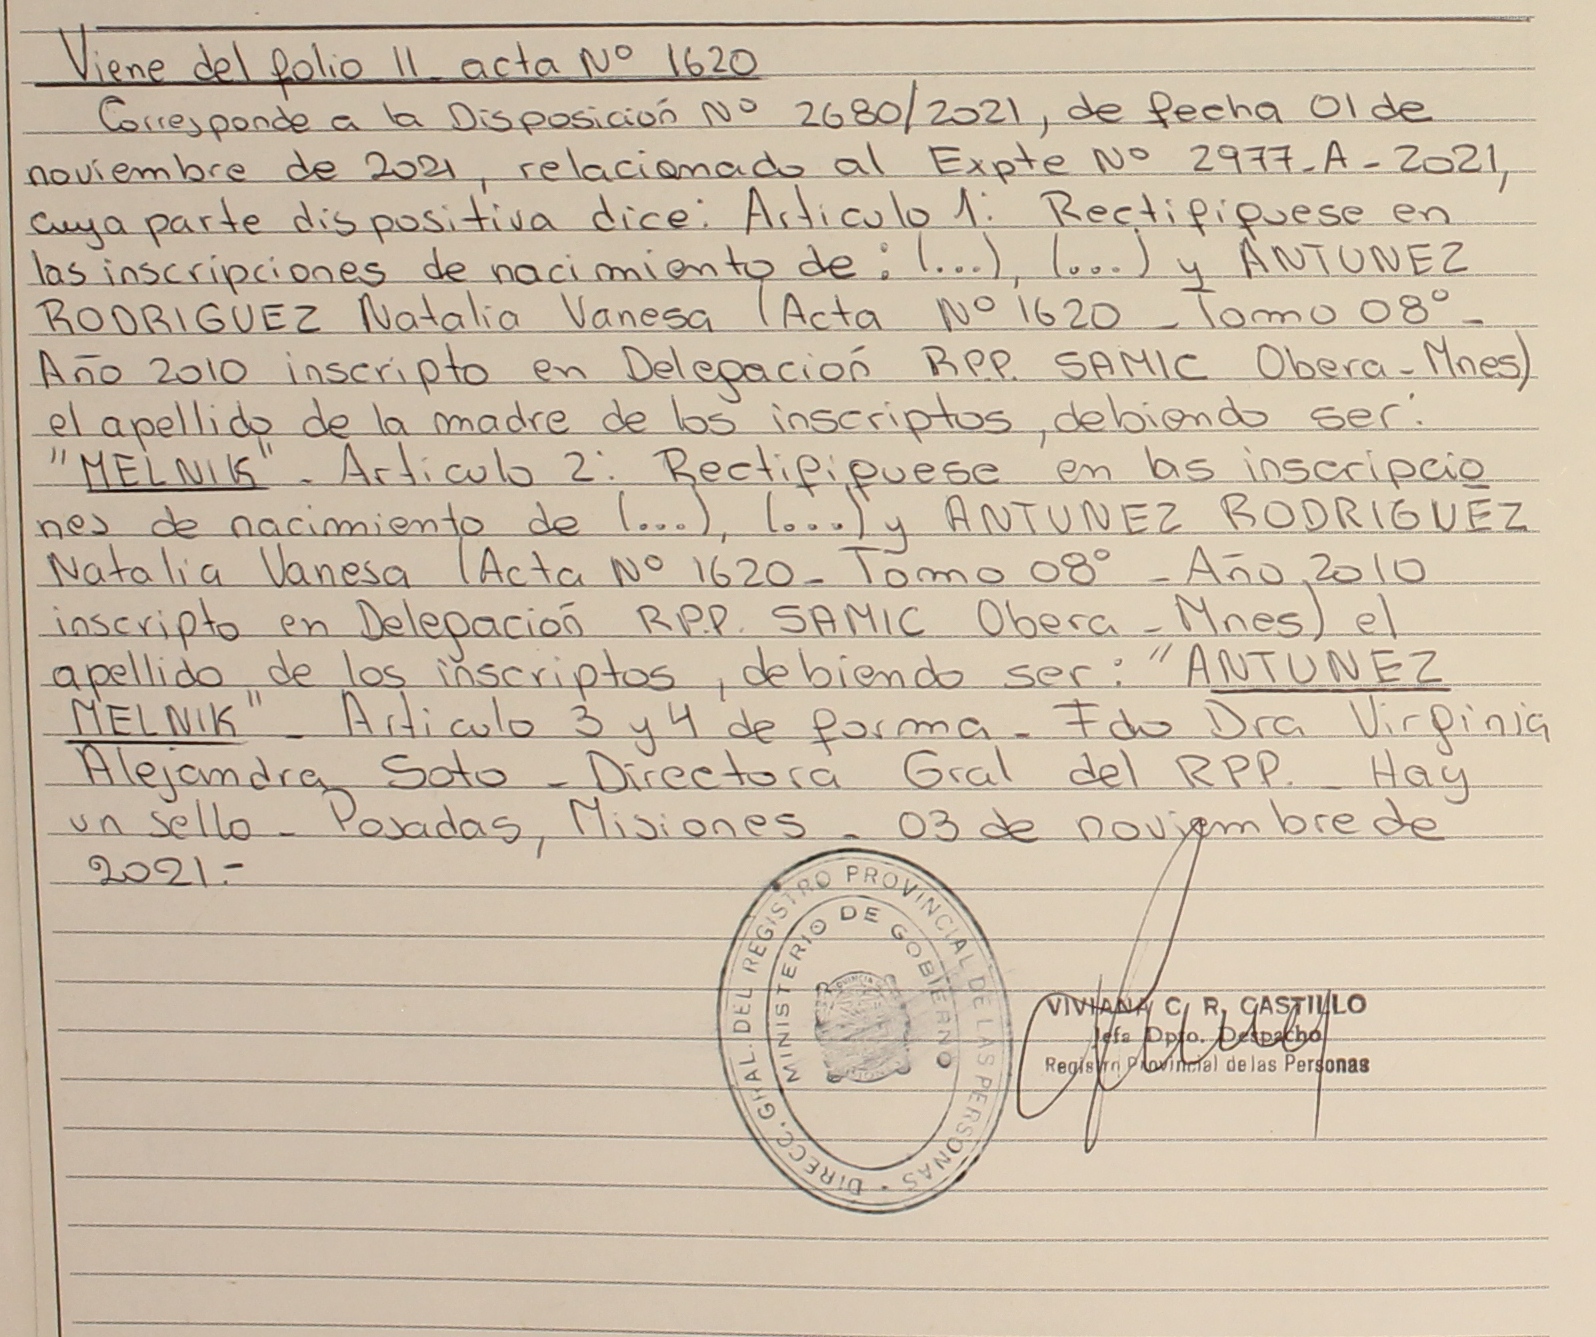 Viene del folio 11 acta Nº 1620
Corresponde a la Disposición Nº 2680/2021, de fecha 01 de
noviembre de 2021, relacionado al Expte Nº 2977-A-2021,
cuya parte dispositiva dice: Articulo 1: Rectifiquese en
las inscripciones de nacimiento de: (...), (...) y ANTUNEZ
RODRIGUEZ Natalia Vanesa (Acta Nº 1620 - Tomo 08º -
Año 2010 inscripto en Delegación R.P.P. SAMIC Obera - Mnes)
el apellido de la madre de los inscriptos, debiendo ser:
"MELNIK" - Articulo 2: Rectifiquese en las inscripcio
nes de nacimiento de (...), (...) y ANTUNEZ RODRIGUEZ
Natalia Vanesa (Acta Nº 1620 - Tomo 08º - Año 2010
inscripto en Delegación R.P.P. SAMIC Obera - Mnes) el
apellido de los inscriptos, debiendo ser: "ANTUNEZ
MELNIK" - Articulo 3 y 4 de forma - Fdo Dra Virginia
Alejandra Soto - Directora Gral del RPP. - Hay
un sello - Posadas, Misiones - 03 de noviembre de
2021.-
DIRECC. GRAL. DEL REGISTRO PROVINCIAL DE LAS PERSONAS
MINISTERIO DE GOBIERNO
VIVIANA C. R. CASTILLO
Jefa Dpto. Despacho
Registro Provincial de las Personas